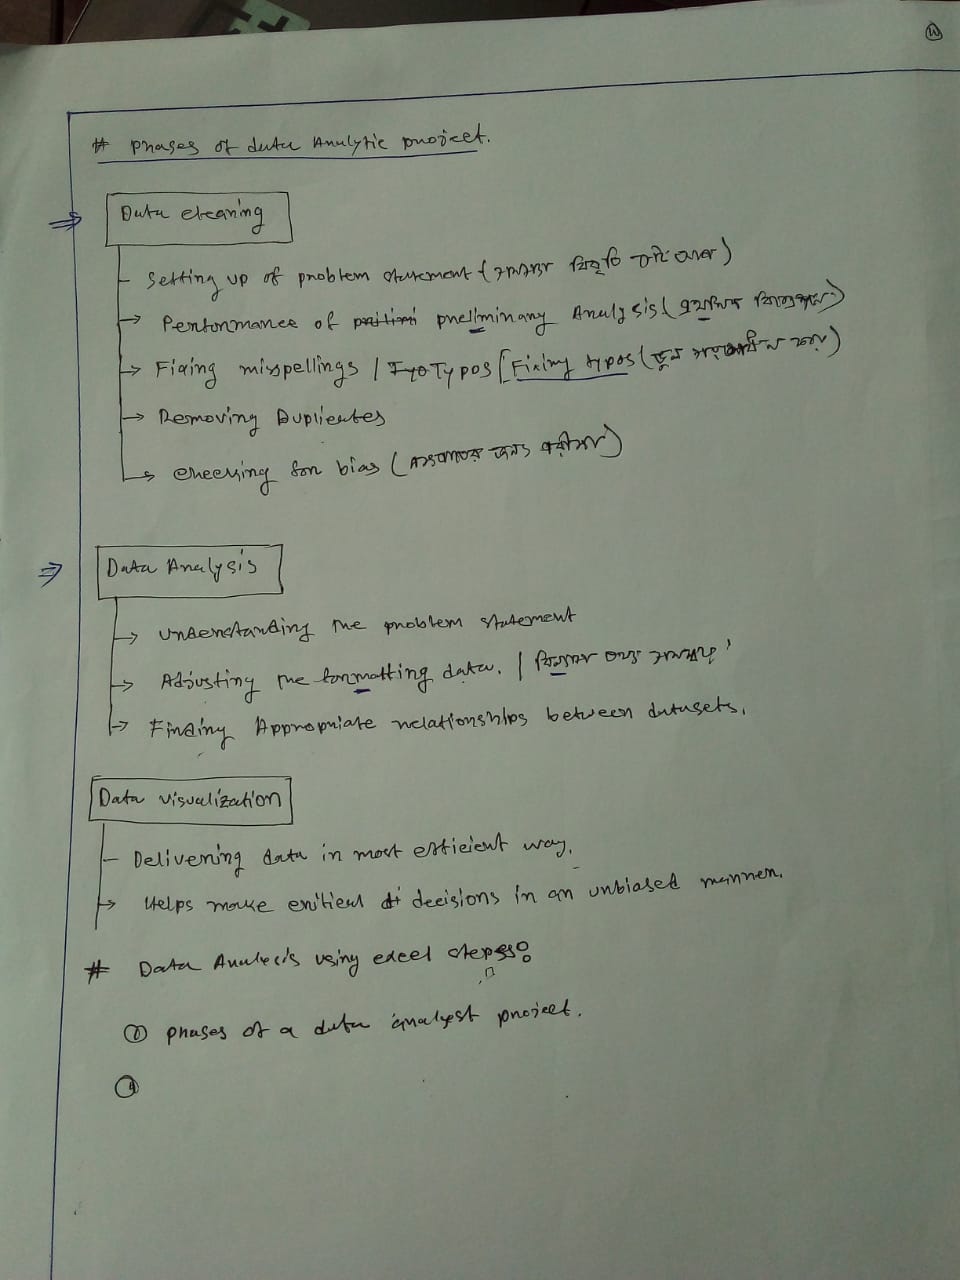 # phases of data Analytic project.
Data cleaning
Setting up of problem statement (
Performance of preliminary Analysis (প্রাথমিক বিশ্লেষণ)
Fixing misspellings / Typos [Fixing typos (ভুল
Removing Duplicates
Checking for bias (
Data Analysis
Understanding the problem statement
Adjusting the formatting data. /
Finding Appropriate relationships between datasets.
Data visualization
Delivering data in most efficient way.
Helps make critical decisions in an unbiased manner.
# Data Analysis using excel steps:
① phases of a data analyst project.